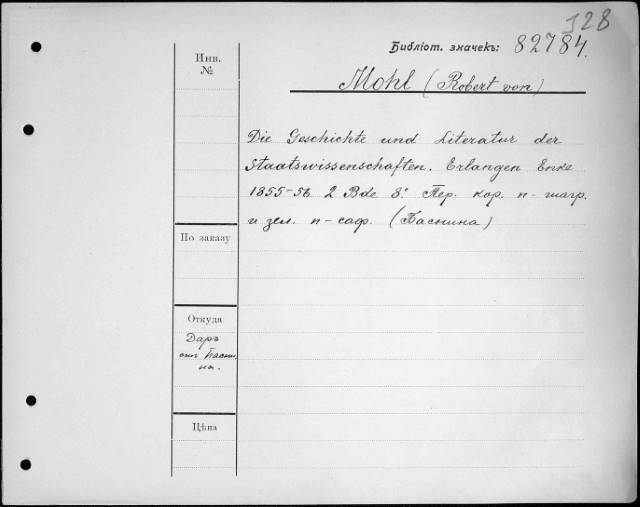 128
Библіот. значекъ: 82784.
Инв.
№
Mohl (Robert von)
Die Geschichte und Literatur der
Staatswissenschaften. Erlangen Enke
1855-56. 2 Bde 8º. Пер. кор. п-шагр.
и зел. п-саф. (Баснина)
По заказу
Откуда
Даръ
отъ Басни
на.
Цѣна